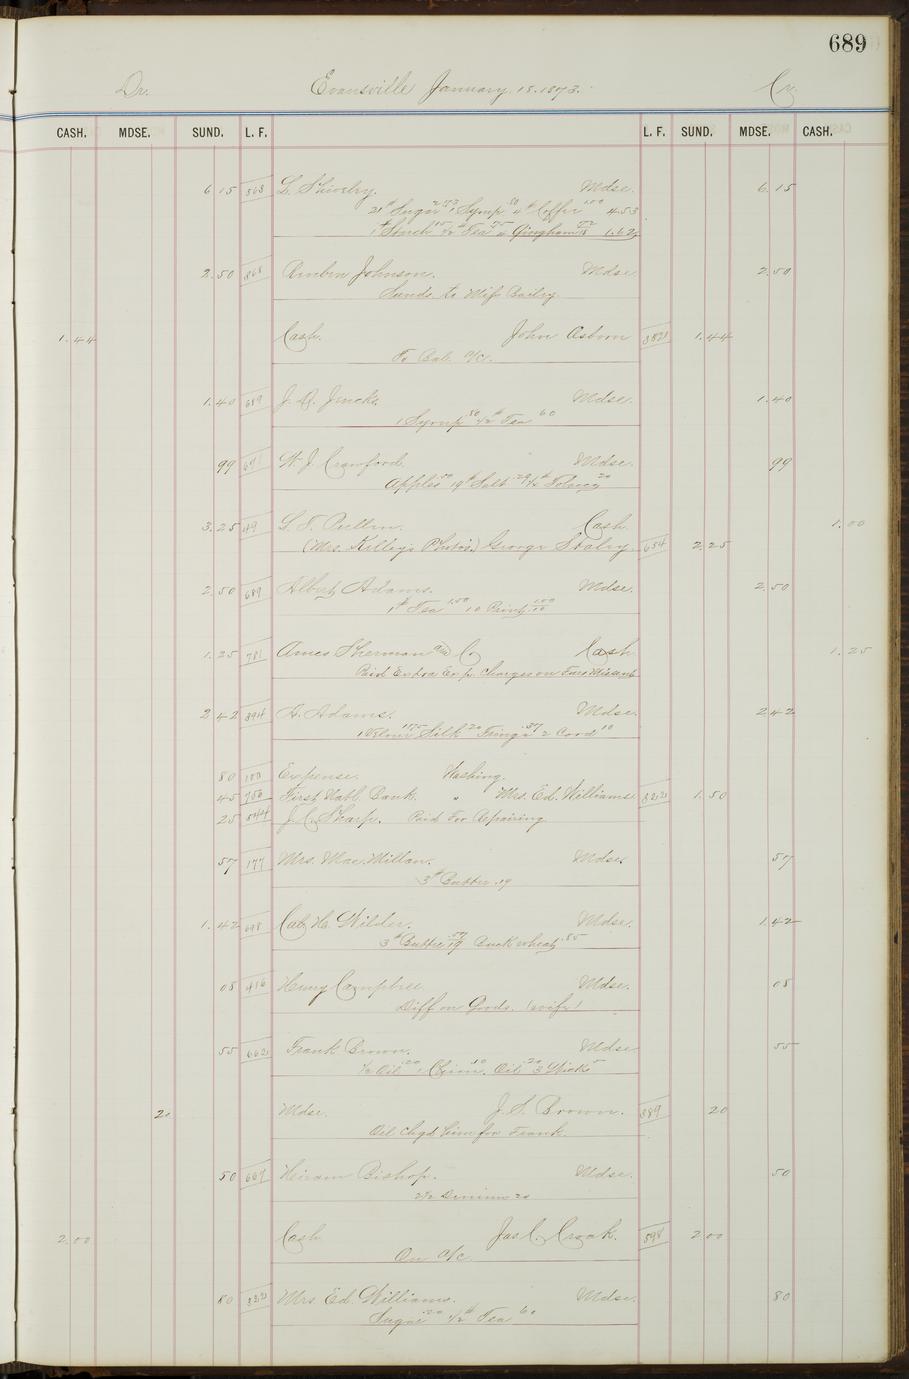 689
Dr. Evansville January 18. 1873. Cr.
CASH. MDSE. SUND. L. F. L. F. SUND. MDSE. CASH.
6 15 568 L. Mdse. 6 15
21# Sugar 2.73 1 Syrup .80 4# Coffee 1.00 4.53
1# Starch 15 1/2# Tea 75 4 Gingham 72/18 1.62
2.50 868 Johnson. Mdse 2.50
Sunds to Miss Bailey
1.44 Cash. John Osborn 382 1.44
To Bal. a/c.
1.40 689 J. Q. Mdse. 1.40
1 Syrup .80 1/2# Tea 60
99 W. J. Crawford. Mdse. 99
Apples 50 19# Salt .29 1/2# Tobacco 20
3.25 49 L. T. Pullen. Cash 1.00
(Mrs. Kelley's Photos.) George Staley 654 2.25
2.50 689 Albert Adams. Mdse. 2.50
1# Tea 1.50 10 Print 1.00/10
1.25 781 Ames Sherman and Co Cash 1.25
Paid Extra Exp. Charges on Furs Missent
2 42 394 A. Adams. Mdse. 2 42
1 Silk 20 Fringe .37 2 Cord 10
80 100 Expense. Washing.
45 750 First Natl. Bank. " Mrs. Ed. Williams 822 1.50
25 544 J. C. Sharp. Paid For Repairing
57 177 Mrs. Mac.Millan. Mdse. 57
3# Butter .19
1.42 698 Cal. H. Wilder. Mdse. 1.42
3# Butter .57/19 Buckwheat .85
08 416 Henry Mdse. 08
Diff on Goods. (wife)
55 662 Frank Brown. Mdse 55
1/2 Oil .20 1 Chim. .10 Oil .20 3 Wicks 5
20 Mdse. J. S. Brown. 389 20
Oil chgd him for Frank.
50 667 Hiram Bishop. Mdse. 50
2 1/2 Denims 20
2.00 Cash Jas C. Croak. 898 2.00
On a/c.
80 822 Mrs. Ed. Williams. Mdse. 80
Sugar .20 1/2# Tea 60